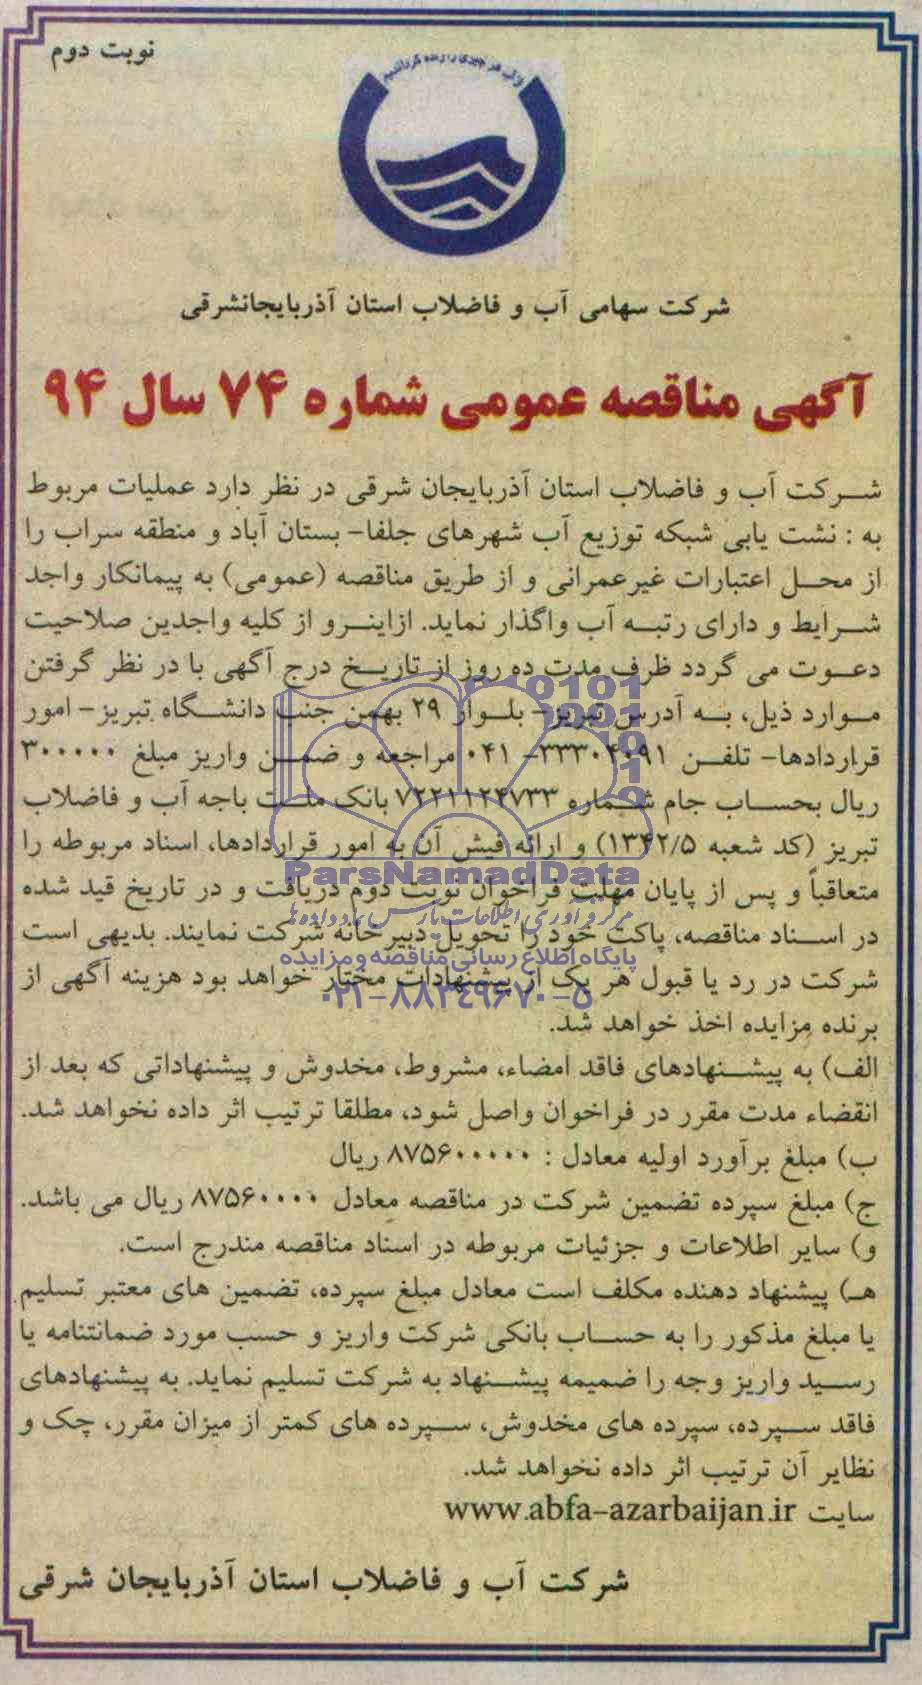 نوبت دوم
شرکت سهامی آب و فاضلاب استان آذربایجانشرقی
آگهی مناقصه عمومی شماره ۷۴ سال ۹۴
شرکت آب و فاضلاب استان آذربایجان شرقی در نظر دارد عملیات مربوط
به : نشت یابی شبکه توزیع آب شهرهای جلفا- بستان آباد و منطقه سراب را
از محل اعتبارات غیرعمرانی و از طریق مناقصه (عمومی) به پیمانکار واجد
شرایط و دارای رتبه آب واگذار نماید. ازاینرو از کلیه واجدین صلاحیت
دعوت می گردد ظرف مدت ده روز از تاریخ درج آگهی با در نظر گرفتن
موارد ذیل، به آدرس تبریز- بلوار ۲۹ بهمن جنب دانشگاه تبریز- امور
قراردادها- تلفن ۳۳۳۰۴۰۹۱- ۰۴۱ مراجعه و ضمن واریز مبلغ ۳۰۰۰۰۰
ریال بحساب جام شماره ۷۲۲۱۱۲۴۷۳۳ بانک ملت باجه آب و فاضلاب
تبریز (کد شعبه ۱۳۴۲/۵) و ارائه فیش آن به امور قراردادها، اسناد مربوطه را
متعاقباً و پس از پایان مهلت فراخوان نوبت دوم دریافت و در تاریخ قید شده
در اسناد مناقصه، پاکت خود را تحویل دبیرخانه شرکت نمایند. بدیهی است
شرکت در رد یا قبول هر یک از پیشنهادات مختار خواهد بود هزینه آگهی از
برنده مزایده اخذ خواهد شد.
الف) به پیشنهادهای فاقد امضاء، مشروط، مخدوش و پیشنهاداتی که بعد از
انقضاء مدت مقرر در فراخوان واصل شود، مطلقا ترتیب اثر داده نخواهد شد.
ب) مبلغ برآورد اولیه معادل : ۸۷۵۶۰۰۰۰۰ ریال
ج) مبلغ سپرده تضمین شرکت در مناقصه معادل ۸۷۵۶۰۰۰۰ ریال می باشد.
و) سایر اطلاعات و جزئیات مربوطه در اسناد مناقصه مندرج است.
هـ) پیشنهاد دهنده مکلف است معادل مبلغ سپرده، تضمین های معتبر تسلیم
یا مبلغ مذکور را به حساب بانکی شرکت واریز و حسب مورد ضمانتنامه یا
رسید واریز وجه را ضمیمه پیشنهاد به شرکت تسلیم نماید. به پیشنهادهای
فاقد سپرده، سپرده های مخدوش، سپرده های کمتر از میزان مقرر، چک و
نظایر آن ترتیب اثر داده نخواهد شد.
سایت www.abfa-azarbaijan.ir
شرکت آب و فاضلاب استان آذربایجان شرقی
ParsNamadData
مرکز فرآوری اطلاعات پارس نماد داده ها
پایگاه اطلاع رسانی مناقصه و مزایده
۰۲۱-۸۸۳۴۹۶۷۰-۵